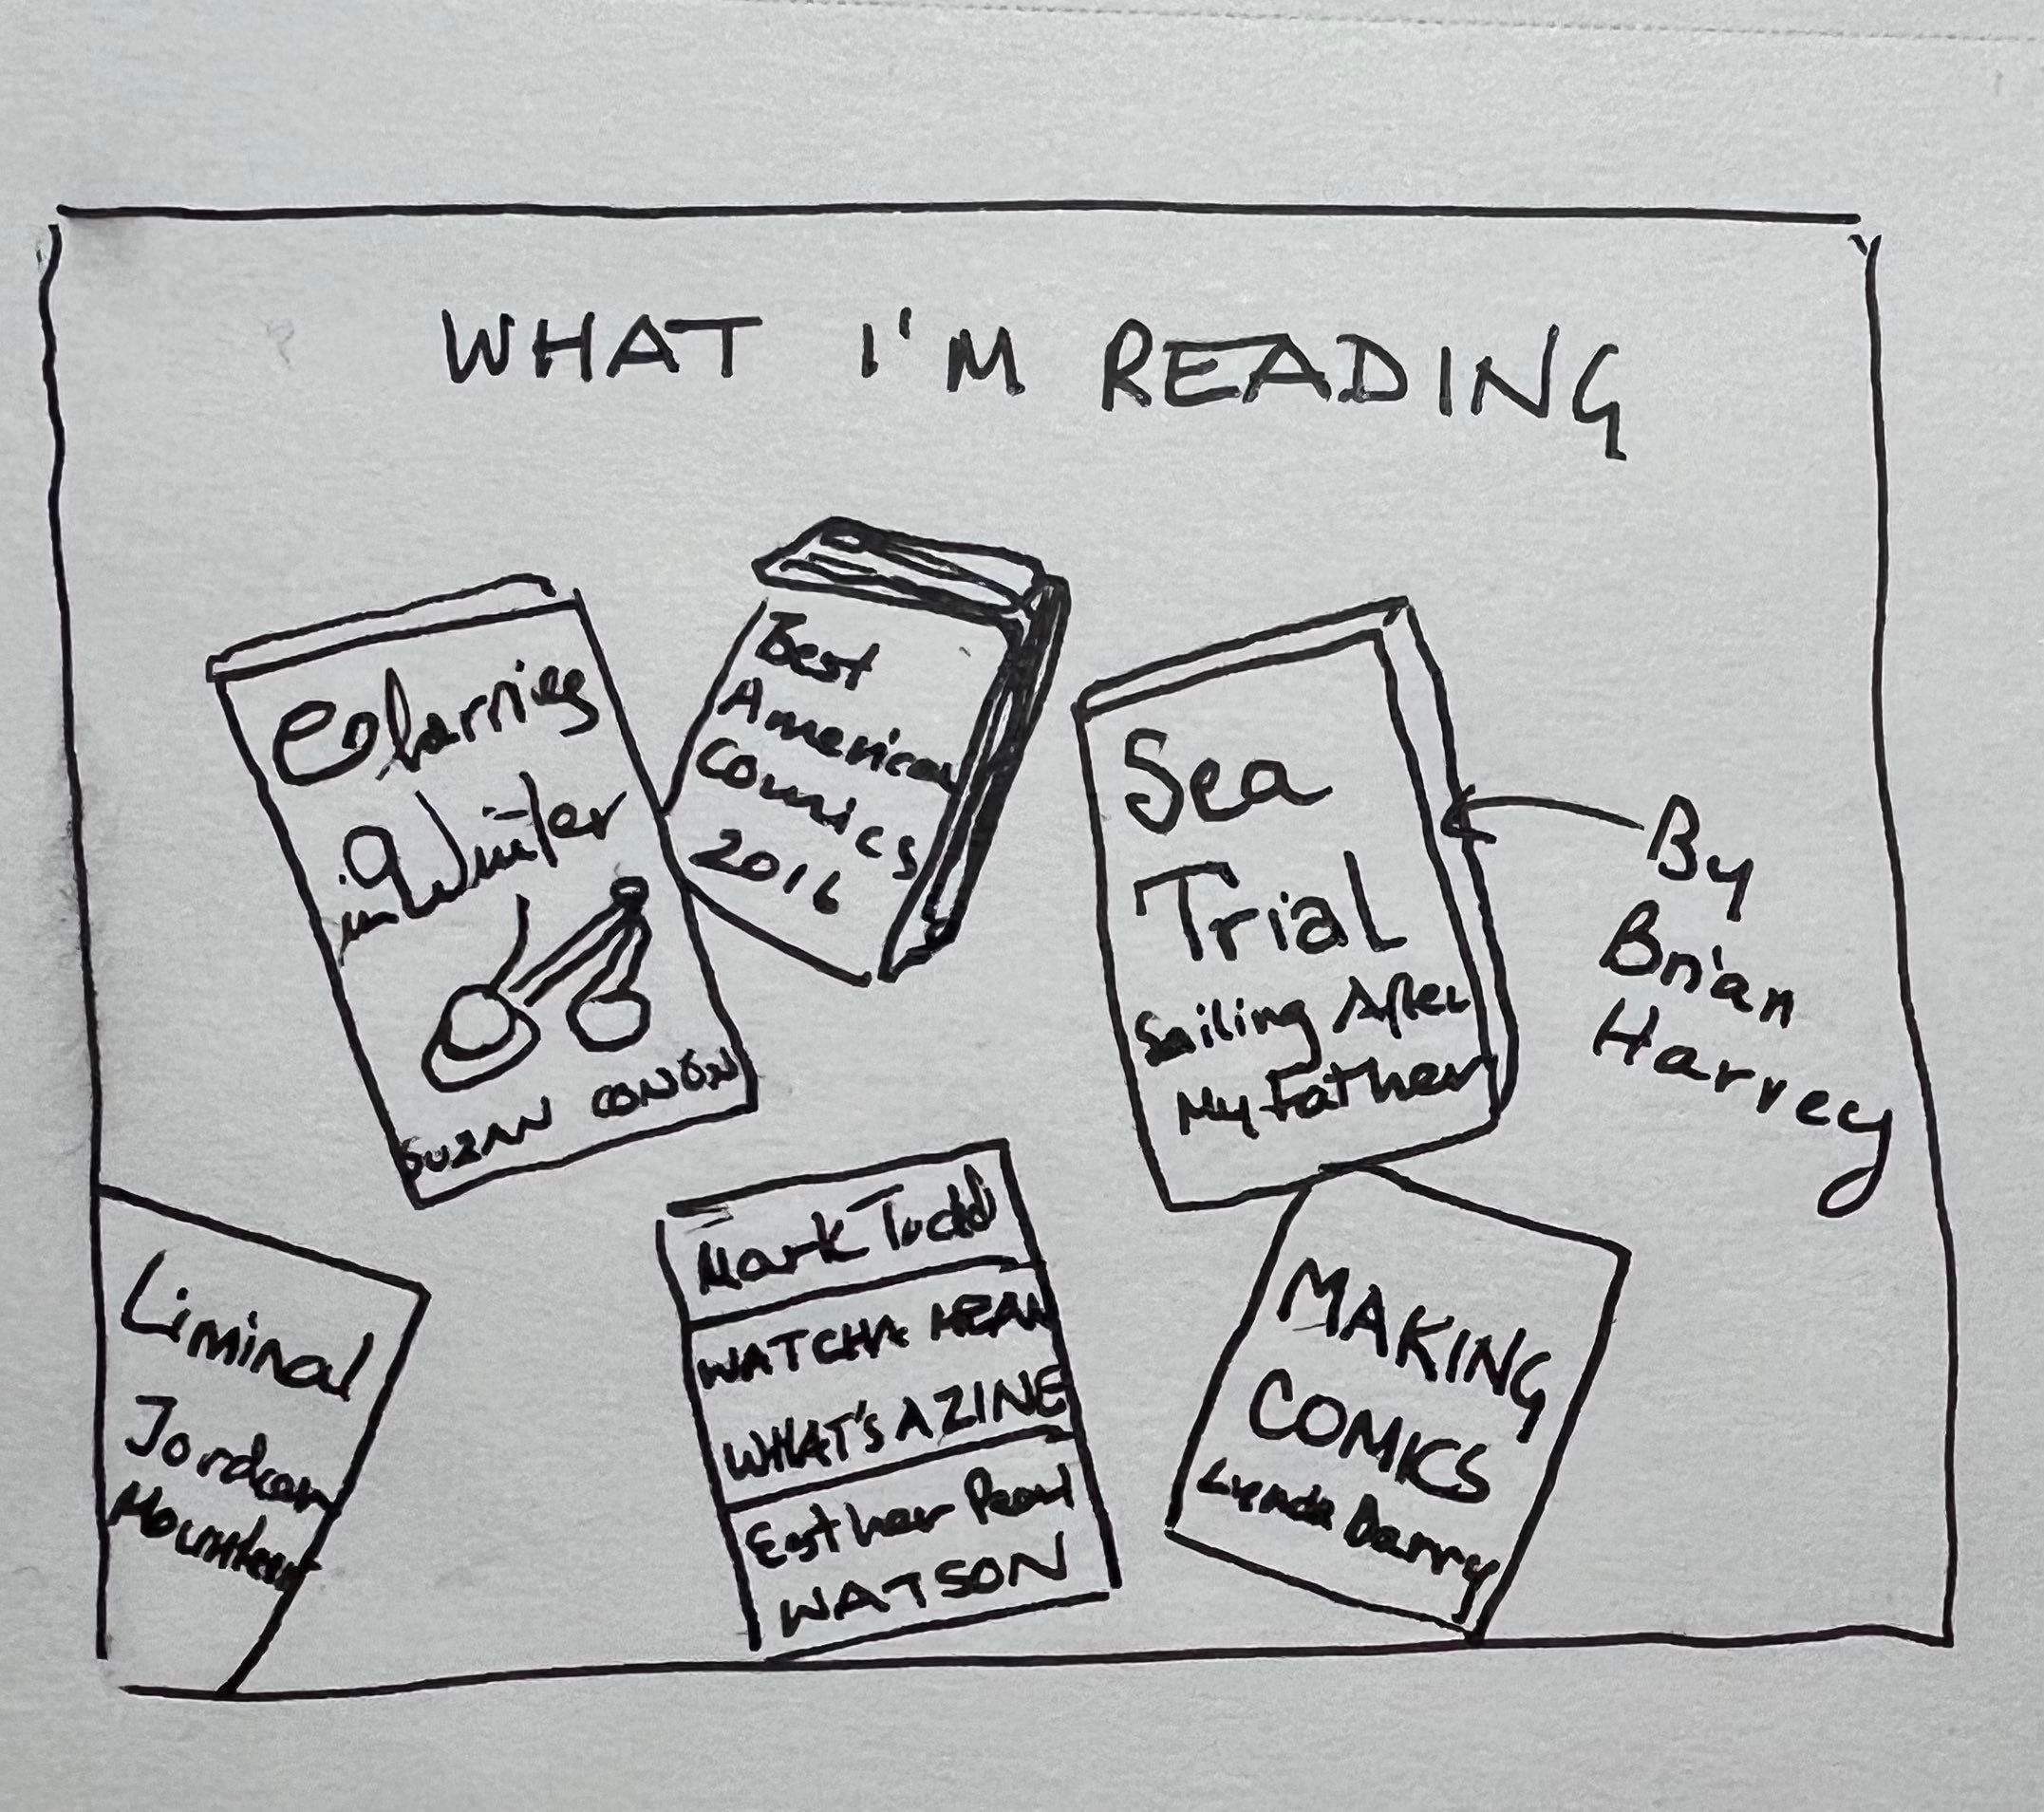 WHAT I'M READING
in Winter
SUZAN CONÓN
Best
American
Comics
2016
Sea
Trial
Sailing After
My Father
By
Brian
Harvey
Liminal
Jordan
Mark Todd
WATCHA MEAN
WHAT'S A ZINE
Esther Pearl
WATSON
MAKING
COMICS
Lynda Barry